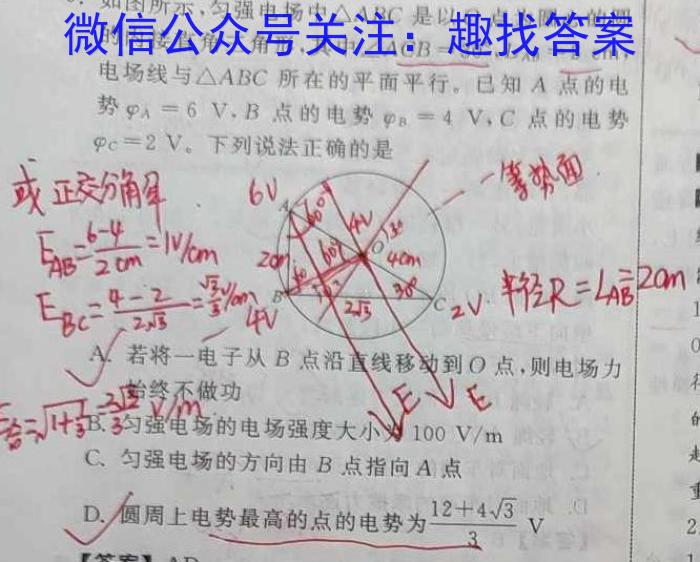 如图所示,匀强电场中△ABC 是以O
微信公众号关注:趣找答案
电场线与△ABC 所在的平面平行。已知 A 点的电
势 φA = 6 V,B 点的电势 φB = 4 V,C 点的电势
φC=2 V。下列说法正确的是
或正交分解
6V
A
60°
4V
O
30°
等势面
EAB=6-4/2cm=1V/cm
2cm
60°
4cm
EBC=4-2/2√3=√3/3V/cm
B
4V
2√3
30°
C
2V
半径R=LAB=2cm
A. 若将一电子从 B 点沿直线移动到O 点,则电场力
始终不做功
E合=√1+1/3=2√3/3V/m
E
E
B. 匀强电场的电场强度大小为 100 V/m
C. 匀强电场的方向由 B 点指向 A 点
D. 圆周上电势最高的点的电势为 12+4√3/3 V
【答案】AD